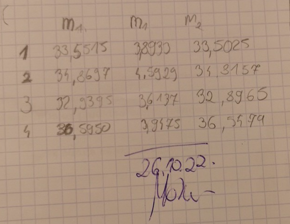 m1. m1 m2
1 33,5515 3,8939 33,5025
2 34,8697 4,5929 34,8157
3 32,9395 3,6197 32,8965
4 36,5950 3,9475 36,5479
26.10.22.